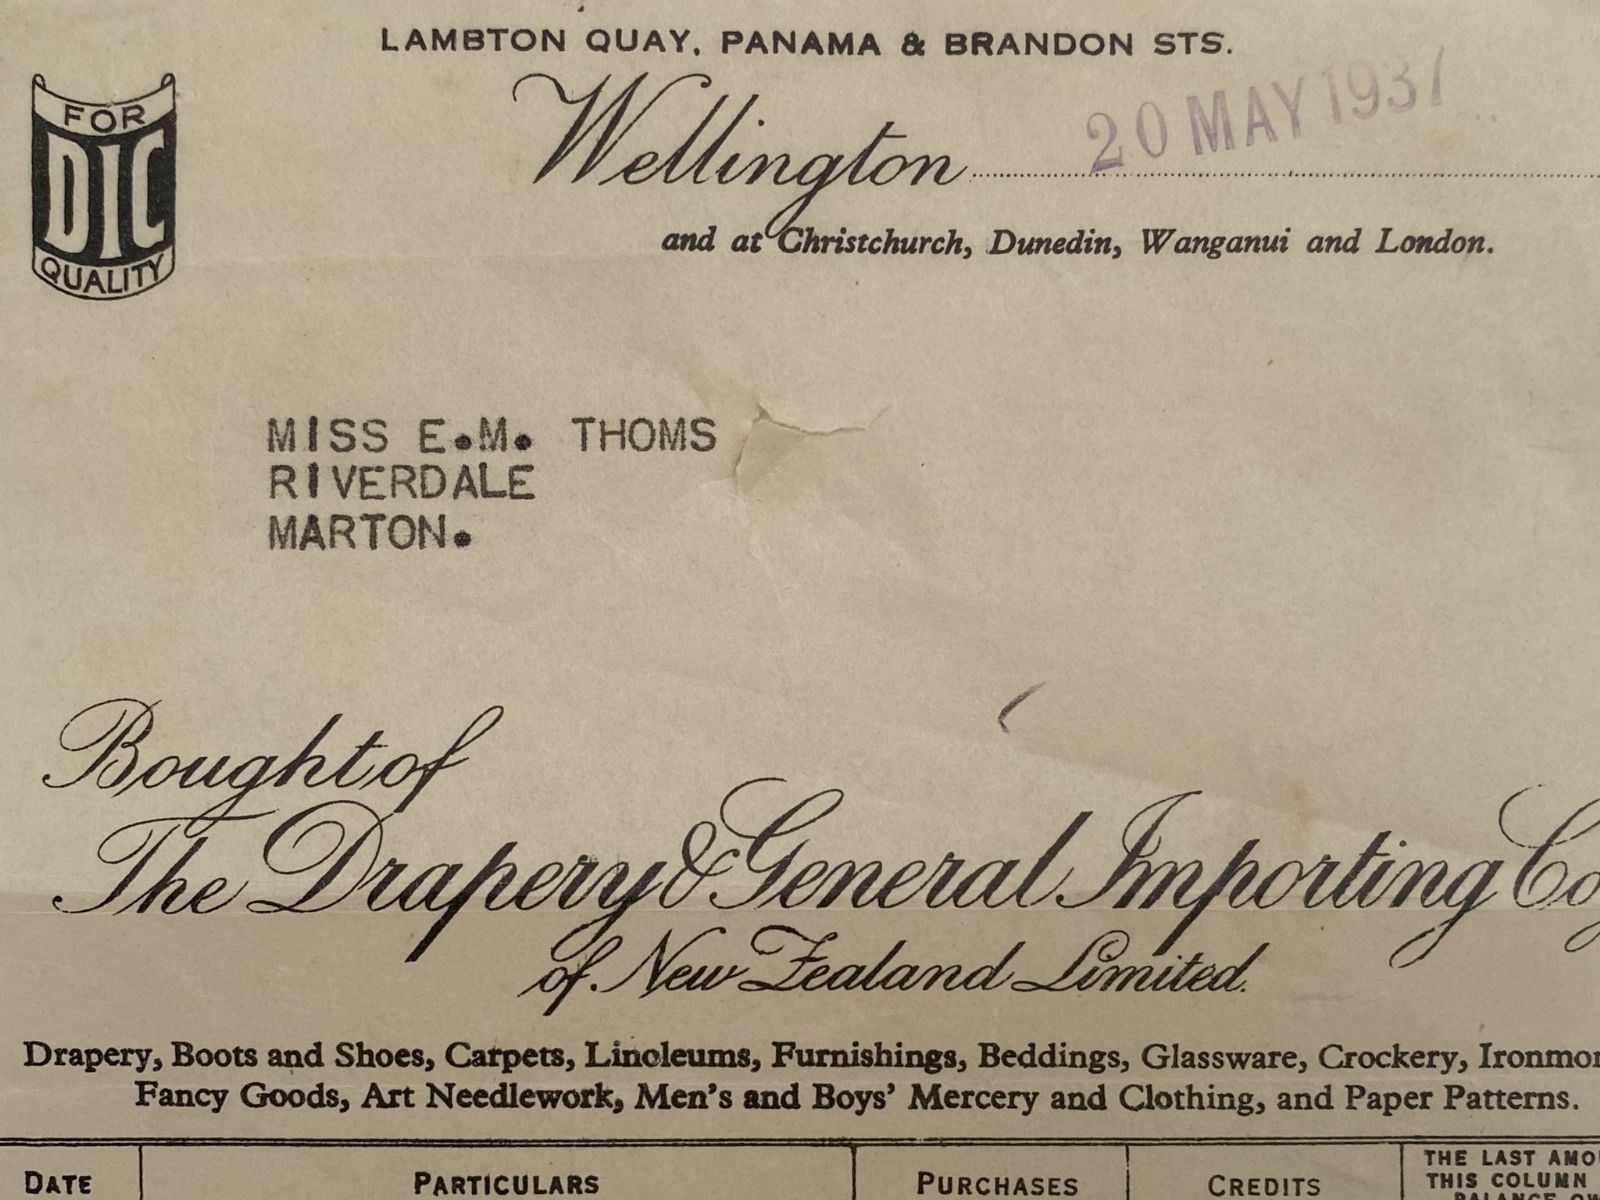 LAMBTON QUAY, PANAMA & BRANDON STS.
FOR
DIC
QUALITY
Wellington 20 MAY 1937
and at Christchurch, Dunedin, Wanganui and London.
MISS E.M. THOMS
RIVERDALE
MARTON.
Bought of
The Drapery & General Importing Co
of New Zealand Limited.
Drapery, Boots and Shoes, Carpets, Linoleums, Furnishings, Beddings, Glassware, Crockery, Ironmon
Fancy Goods, Art Needlework, Men's and Boys' Mercery and Clothing, and Paper Patterns.
DATE PARTICULARS PURCHASES CREDITS THE LAST AMO
THIS COLUMN